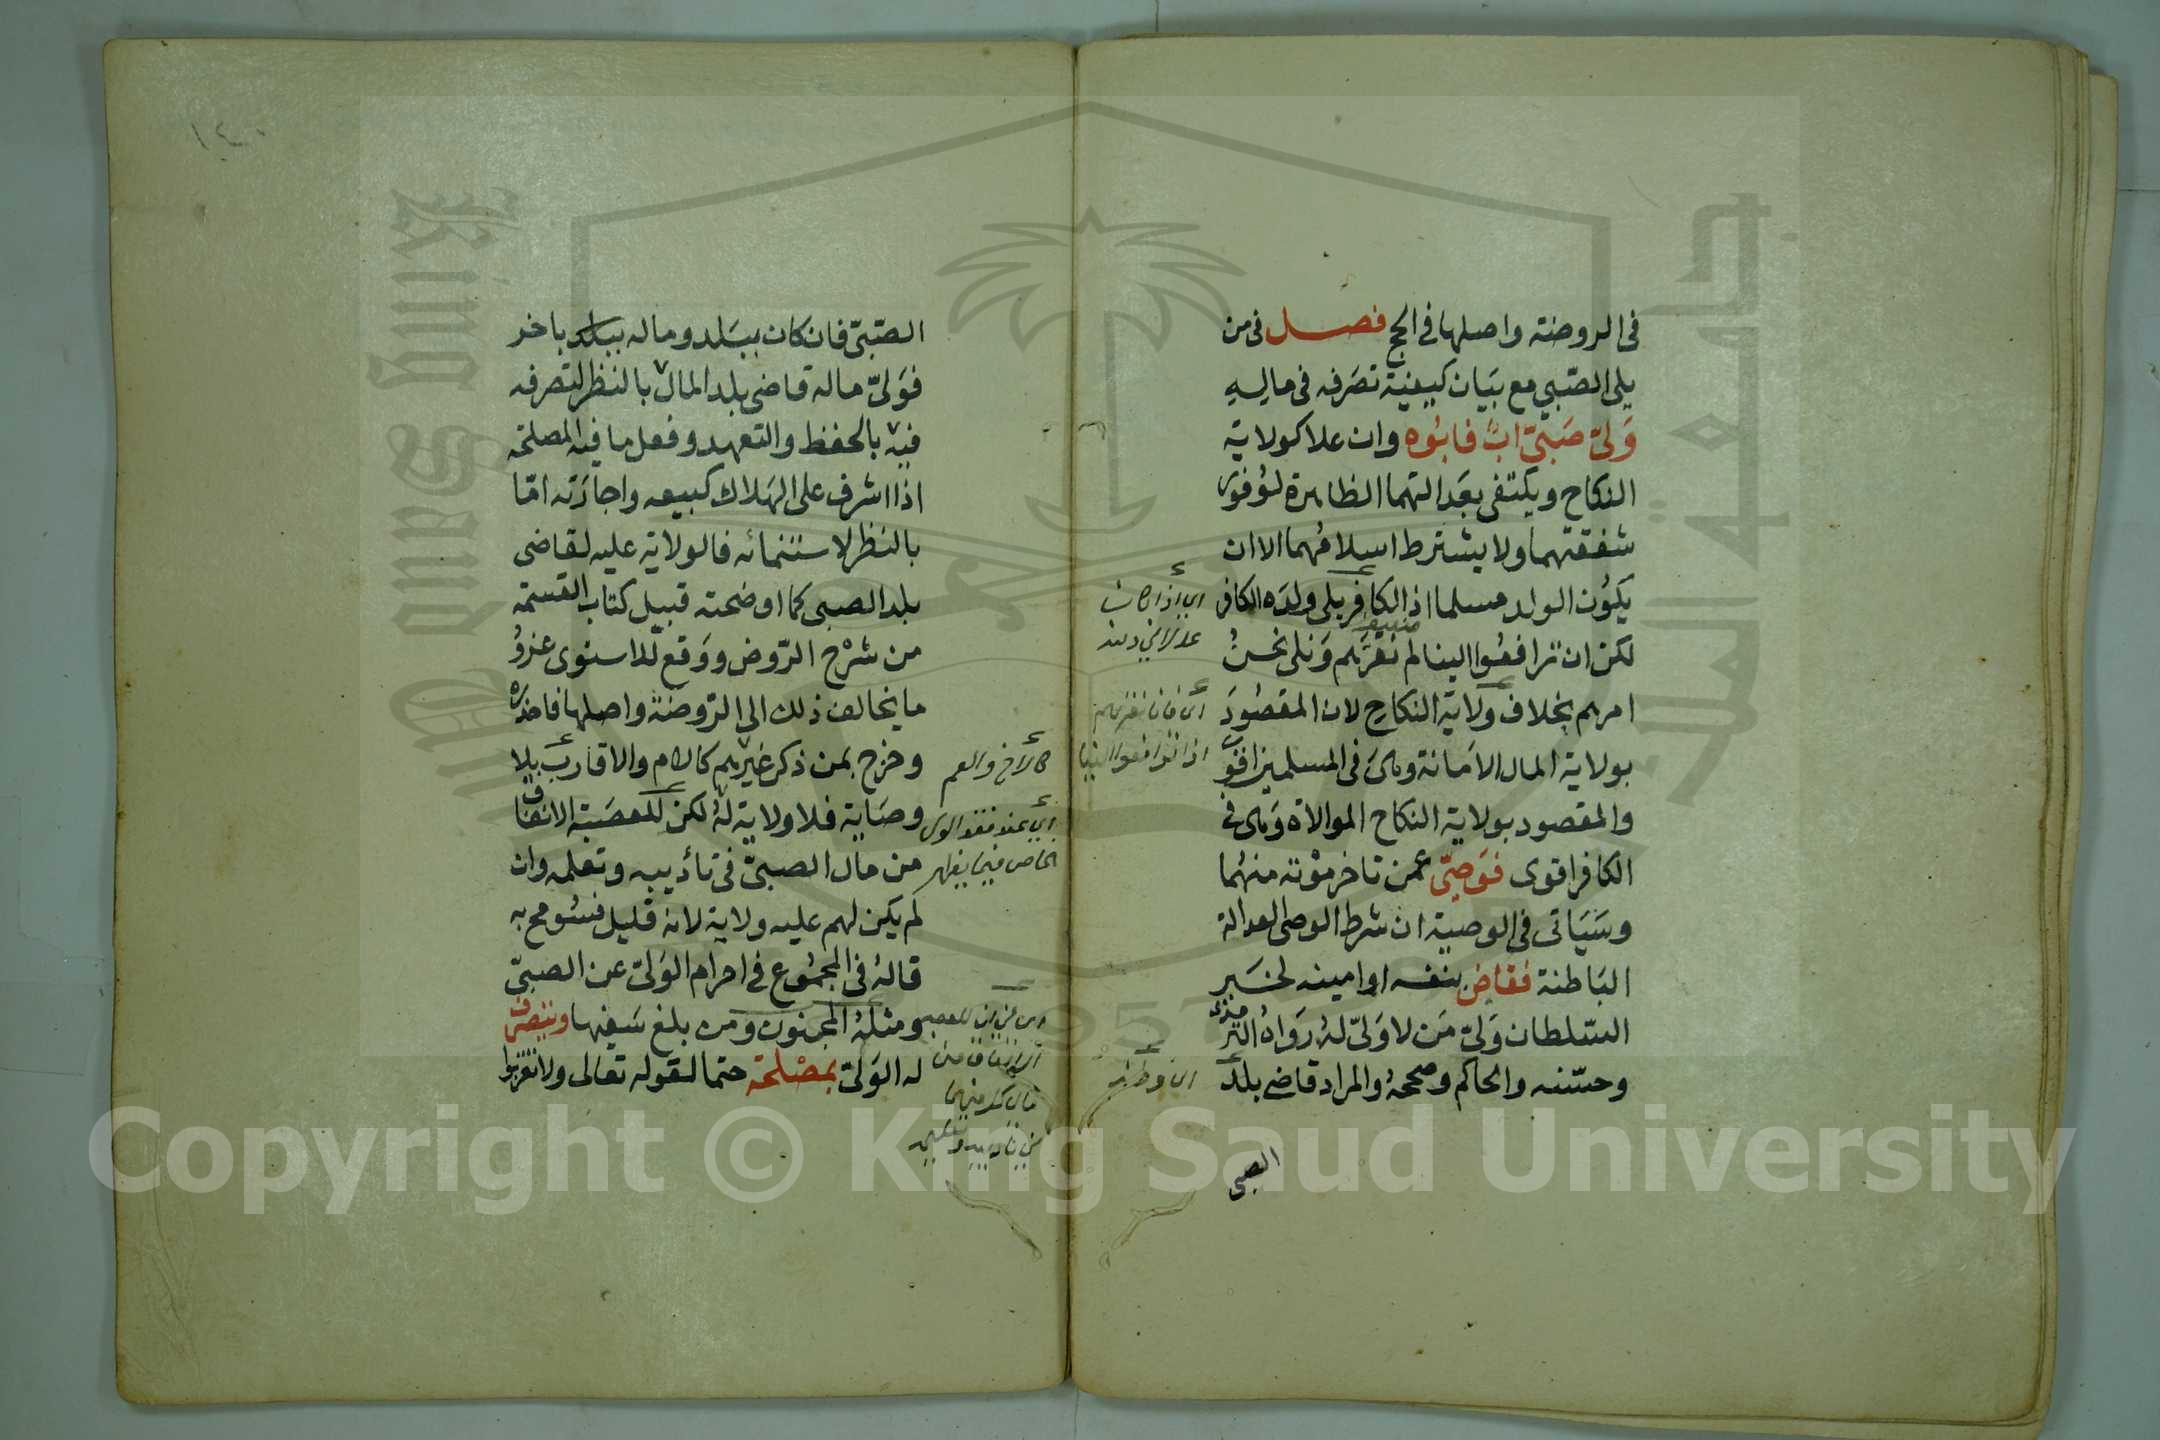 في الروضة واصلها في الحج فصل في من
يلى الصبي مع بيان كيفية تصرفه في ماله
ولى صبي اب فابوه وان علا كولاية
النكاح ويكتفى بعدالتهما الظاهرة لوفور
شفقتهما ولا يشترط اسلامهما الا ان
يكون الولد مسلما اذ الكافر يلى ولده الكافر
لكن ان ترافعوا الينا لم نقرهم ونلى نحن
امرهم بخلاف ولاية النكاح لان المقصود
بولاية المال الامانة وهى في المسلمين اقوى
والمقصود بولاية النكاح الموالاة وهى في
الكافر اقوى فوصي عمن تاخر موته منهما
وسياتى في الوصية ان شرط الوصى العدالة
الباطنة فقاض بنفسه او امينه لخبر
السلطان ولى من لا ولى له رواه الترمذى
وحسنه والحاكم وصححه والمراد قاضى بلد
الصبي
اى اذا كان
عدلا في دينه
اى فانا نقرهم
اذا ترافعوا الينا
اى وطنه
١٤٠
الصبي فان كان ببلد وماله ببلد باخر
فولى ماله قاضى بلد المال بالنظر لتصرفه
فيه بالحفظ والتعهد وفعل ما فيه المصلحة
اذا اشرف على الهلاك كبيعه واجارته امّا
بالنظر لاستنمائه فالولاية عليه لقاضى
بلد الصبى كما اوضحته قبيل كتاب القسمة
من شرح الروض ووقع للاسنوى عزو
ما يخالف ذلك الى الروضة واصلها فاحذره
وخرج بمن ذكر غيرهم كالام والاقارب بلا
وصاية فلا ولاية له لكن للعصبة الانفاق
من مال الصبي في تأديبه وتعلمه وان
لم يكن لهم عليه ولاية لانه قليل فسومح به
قاله في المجموع في احرام الولى عن الصبي
ومثله المجنون ومن بلغ سفيها ويتصرف
له الولى بمصلحة حتما لقوله تعالى ولا تقربوا
كالأخ والعم
اى عند فقد الولى
الخاص فيما يظهر
مال كل منهما
في تاديبه وتعليمه
King Saud University
1957
Copyright © King Saud University